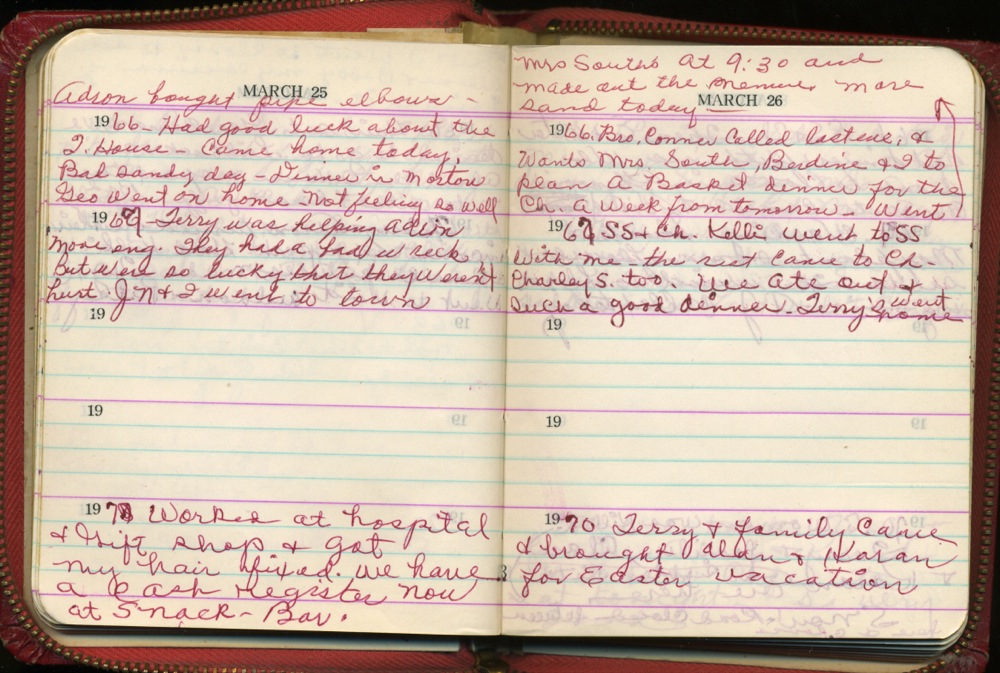 MARCH 25
Adron bought pipe elbows -
1966 - Had good luck about the
T. House - Came home today,
Bad sandy day - Dinner in Morton
Geo went on home Not feeling so well
1967 - Terry was helping Adron
move eng. They had a bad wreck
But were so lucky that they weren't
hurt J N & I went to town
19
19
1970 Worked at hospital
& Thrift shop & got
my hair fixed. we have
a Cash Register now
at Snack-Bar.
Mrs Souths at 9:30 and
made out the Menue, more
sand today
MARCH 26
1966. Bro. Conner Called last eve, &
Wants Mrs. South, Berdine & I to
plan a Basket dinner for the
Ch. a week from tomorrow - Went
1967 SS & Ch. Kelli went to SS
with me the rest came to Ch.
Charley S. too. We ate out &
Such a good dinner - Terry's went home
19
19
1970 Terry & family Came
& brought Alan & Karan
for Easter vacation